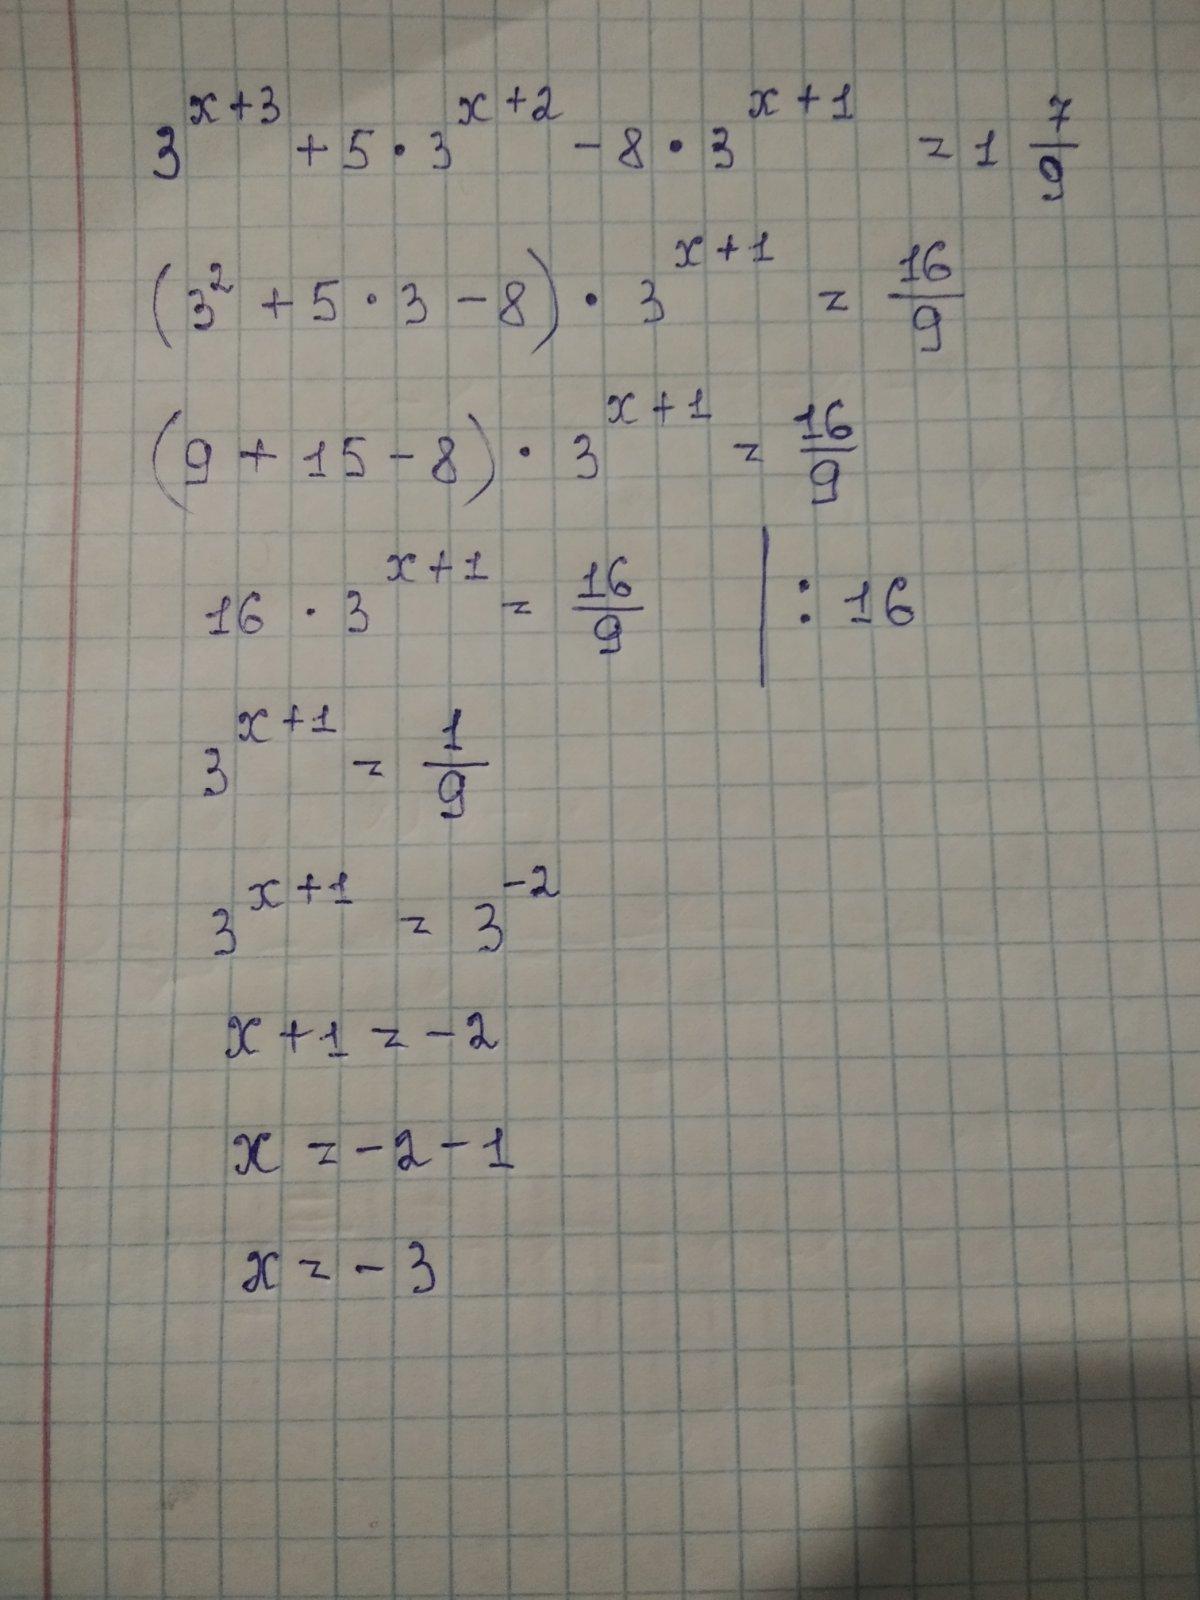 3^{x+3} + 5 · 3^{x+2} - 8 · 3^{x+1} = 1 7/9
(3^2 + 5 · 3 - 8) · 3^{x+1} = 16/9
(9 + 15 - 8) · 3^{x+1} = 16/9
16 · 3^{x+1} = 16/9 | : 16
3^{x+1} = 1/9
3^{x+1} = 3^{-2}
x + 1 = -2
x = -2 - 1
x = -3